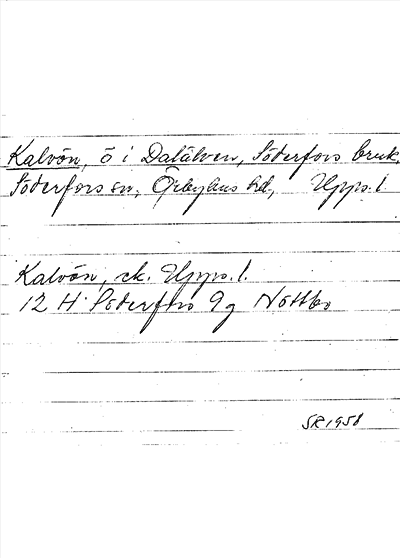 Kalvön, ö i Dalälven, Söderfors bruk,
Söderfors sn, Örbyhus hd, Upps. l.
Kalvön, ek. Upps. l.
12 H Söderfors 9g Nöttbo
SR 1958